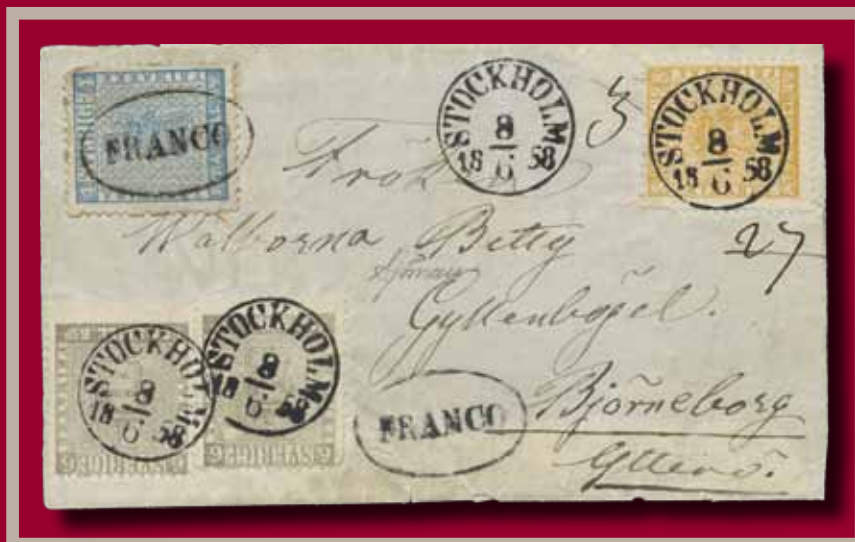 FRANCO
STOCKHOLM
8
6
18 58
3
STOCKHOLM
8
6
18 58
Frök
Walborna Betty
27
Gyllenbögel.
STOCKHOLM
8
6
18 58
STOCKHOLM
8
6
18 58
SVERIGE
FRANCO
Björneborg